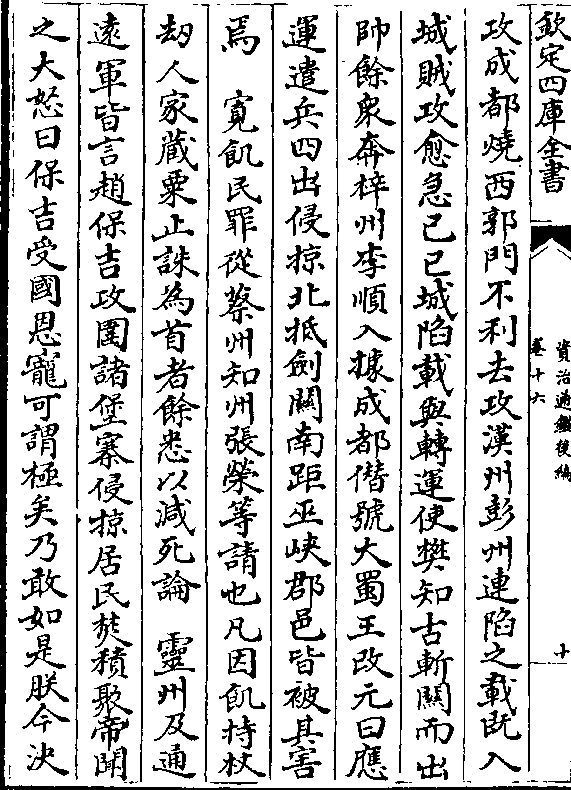 欽定四庫全書
資治通鑑後編
卷十六
十
攻成都燒西郭門不利去攻漢州彭州連陷之載既入
城賊攻愈急己巳城陷載與轉運使樊知古斬關而出
帥餘衆奔梓州李順入據成都僭號大蜀王改元曰應
運遣兵四出侵掠北抵劍關南距巫峽郡邑皆被其害
焉　寛飢民罪從蔡州知州張榮等請也凡因飢持杖
刼人家藏粟止誅為首者餘悉以減死論　靈州及通
遠軍皆言趙保吉攻圍諸堡寨侵掠居民焚積聚帝聞
之大怒曰保吉受國恩寵可謂極矣乃敢如是朕今決